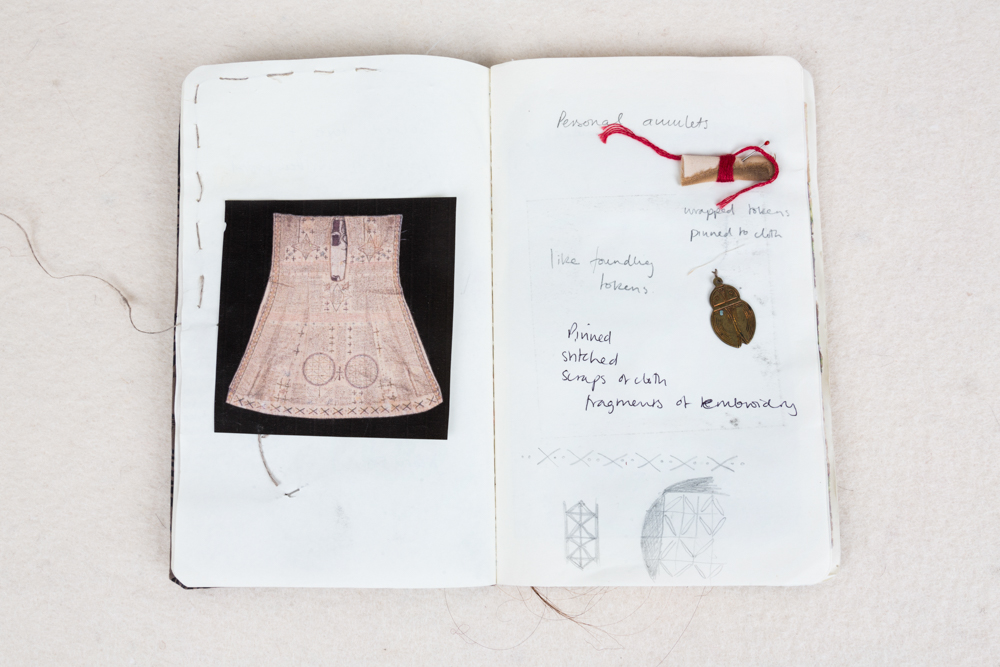 Personal amulets
wrapped tokens
pinned to cloth
like foundling
tokens.
Pinned
stitched
scraps of cloth
fragments of embroidery